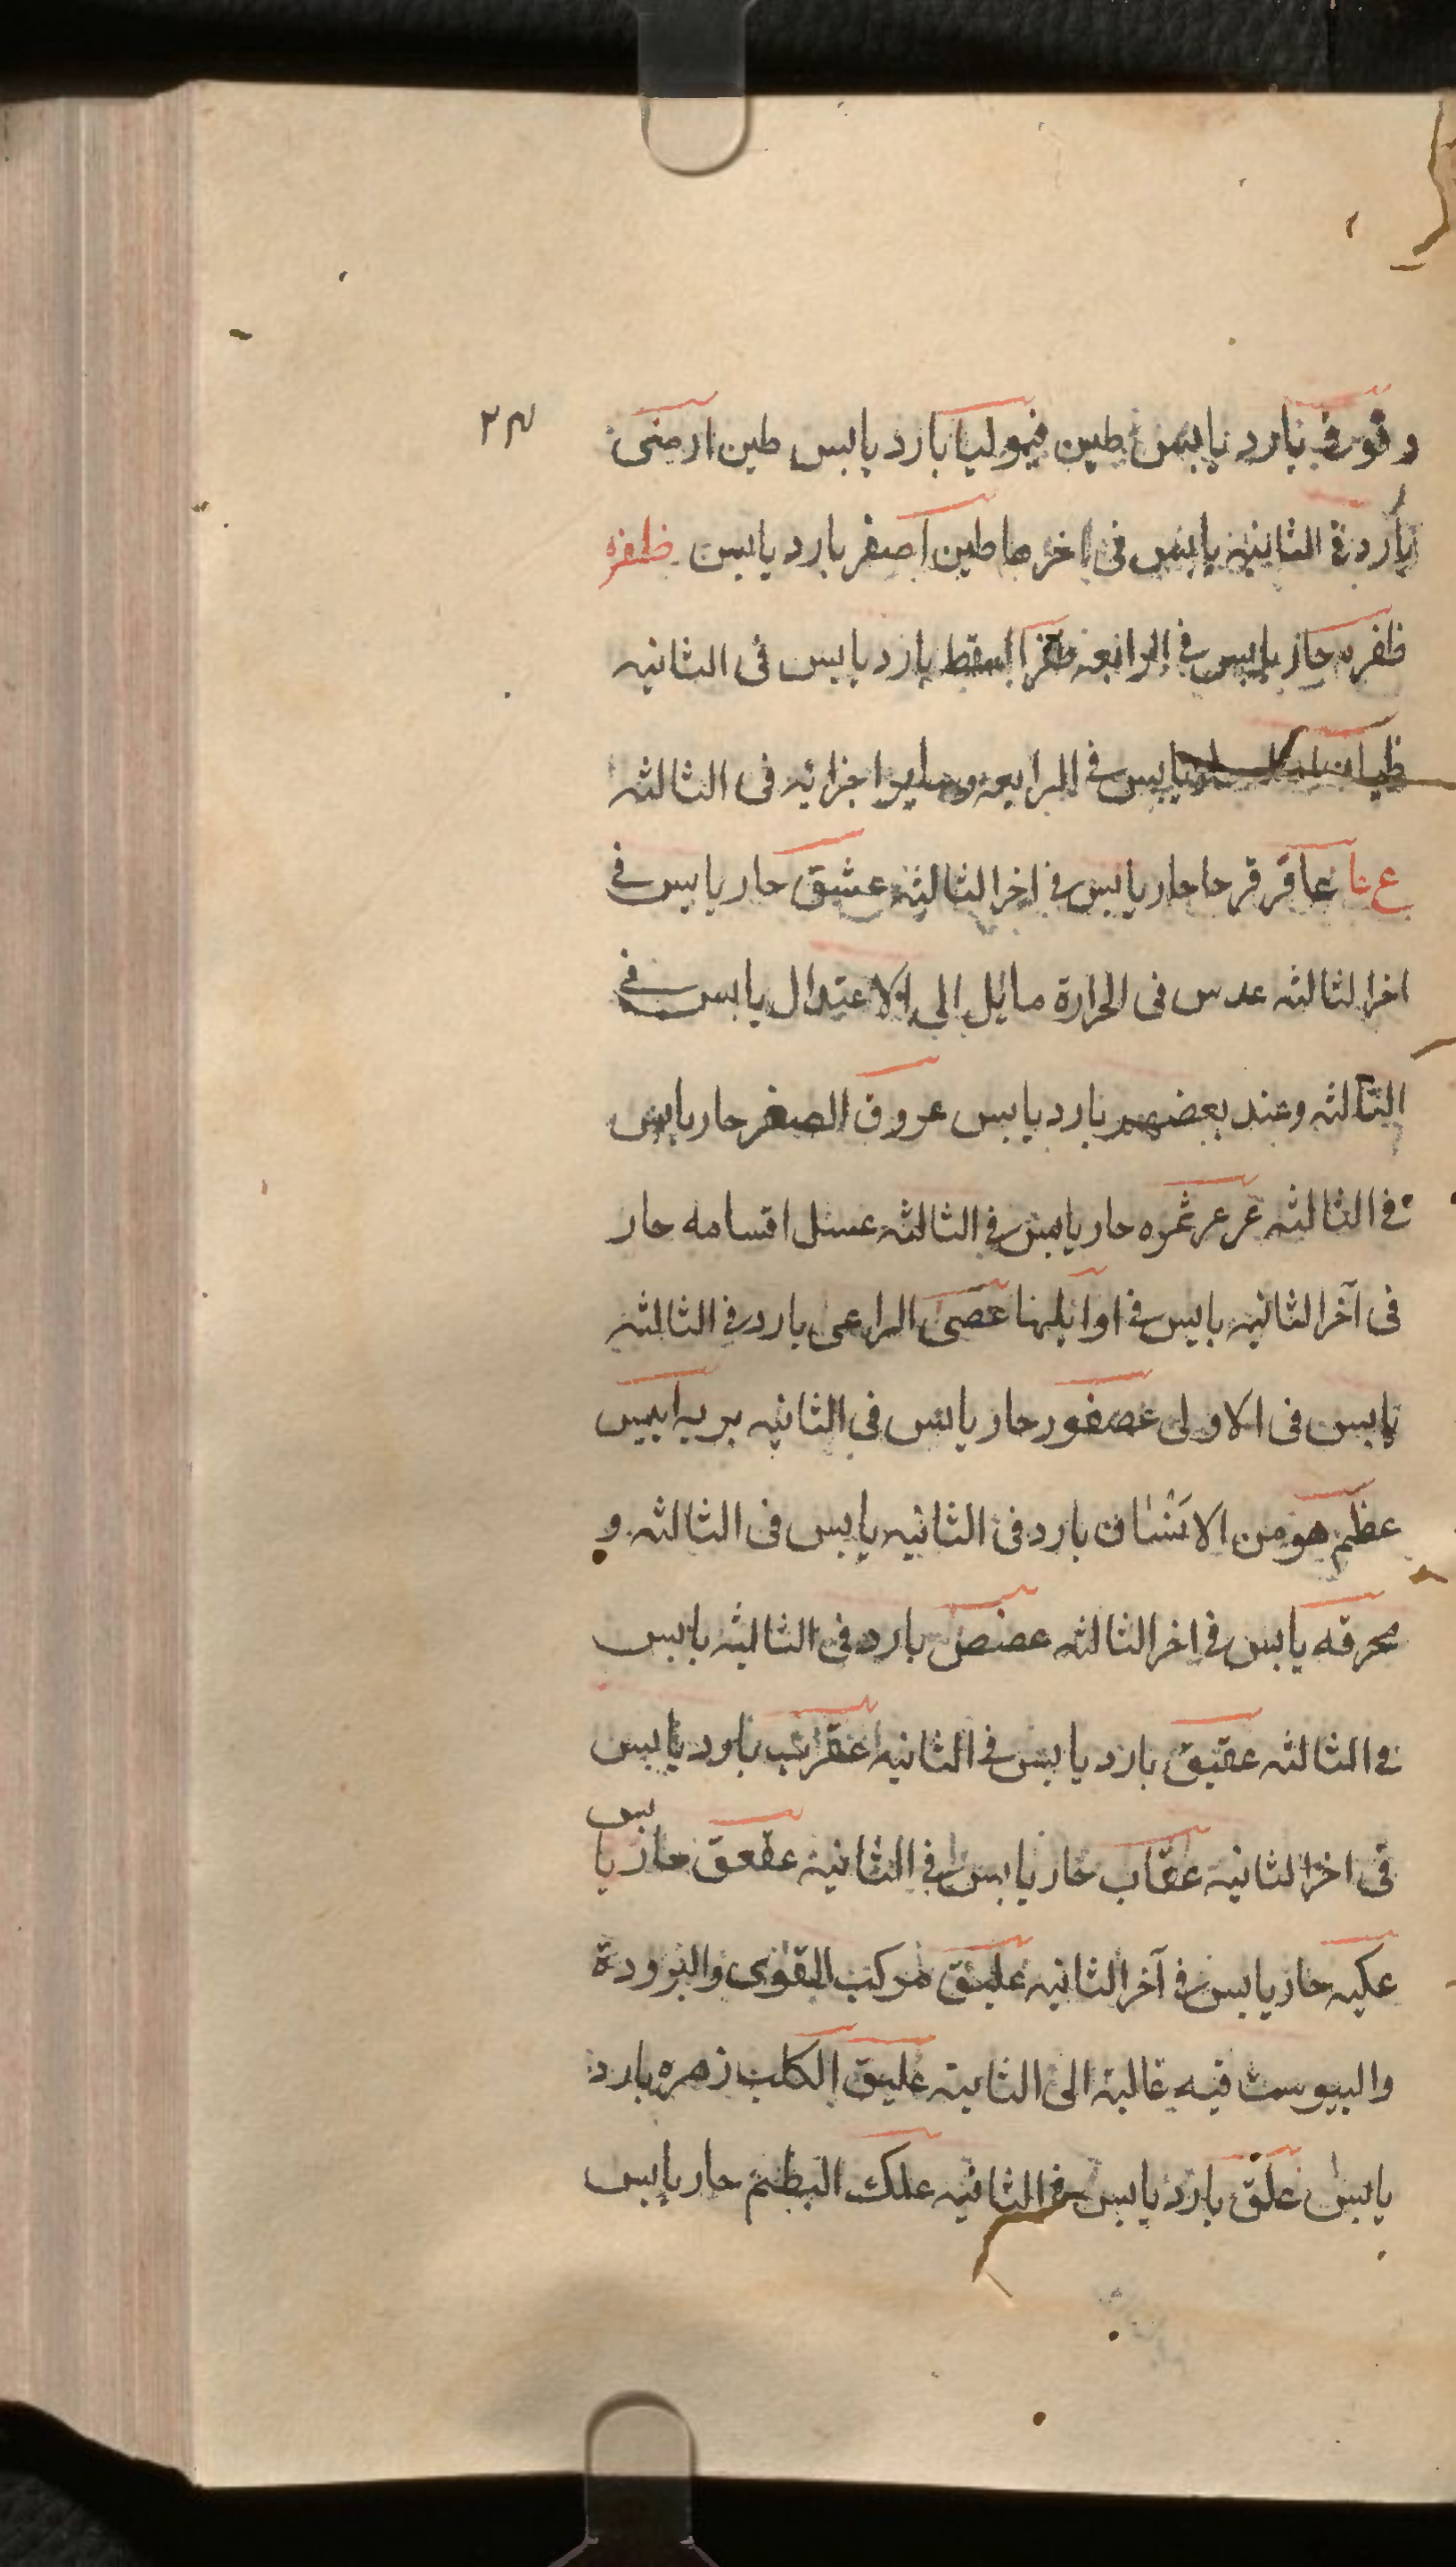 وقوفى بارد يابس طين قيموليا بارد يابس طين ارمنى
٢٣
بارد فى الثانيه يابس فى اخرها طين اصفر بارد يابس ظفره
ظفره حار يابس فى الرابعه ظفر السقط بارد يابس فى الثانيه
ظيان يابس فى الرابعه وساير اجزائه فى الثالثه
ع نا عاقرقرحا حار يابس فى اخر الثالثه عشيق حار يابس فى
اخر الثالثه عدس فى الحرارة مايل الى الاعتدال يابس فى
الثالثه وعند بعضهم بارد يابس عروق الصفر حار يابس
فى الثالثه عرعر ثمره حار يابس فى الثالثه عسل اقسامه حار
فى آخر الثانيه يابس فى اوايلها عصى الراعى بارد فى الثالثه
يابس فى الاولى عصفور حار يابس فى الثانيه بريه ايبس
عظم هو من الانسان بارد فى الثانيه يابس فى الثالثه و
محرقه يابس فى اخر الثالثه عفص بارد فى الثالثه يابس
فى الثالثه عقيق بارد يابس فى الثانيه عقرب بارد يابس
فى اخر الثانيه عقاب حار يابس فى الثانيه عقعق حار يابس
عكبه حار يابس فى آخر الثانيه عليق مركب القوى والبرودة
واليبوست فيه غالبة الى الثانية عليق الكلب زهره بارد
يابس علق بارد يابس فى الثانيه علك البطم حار يابس